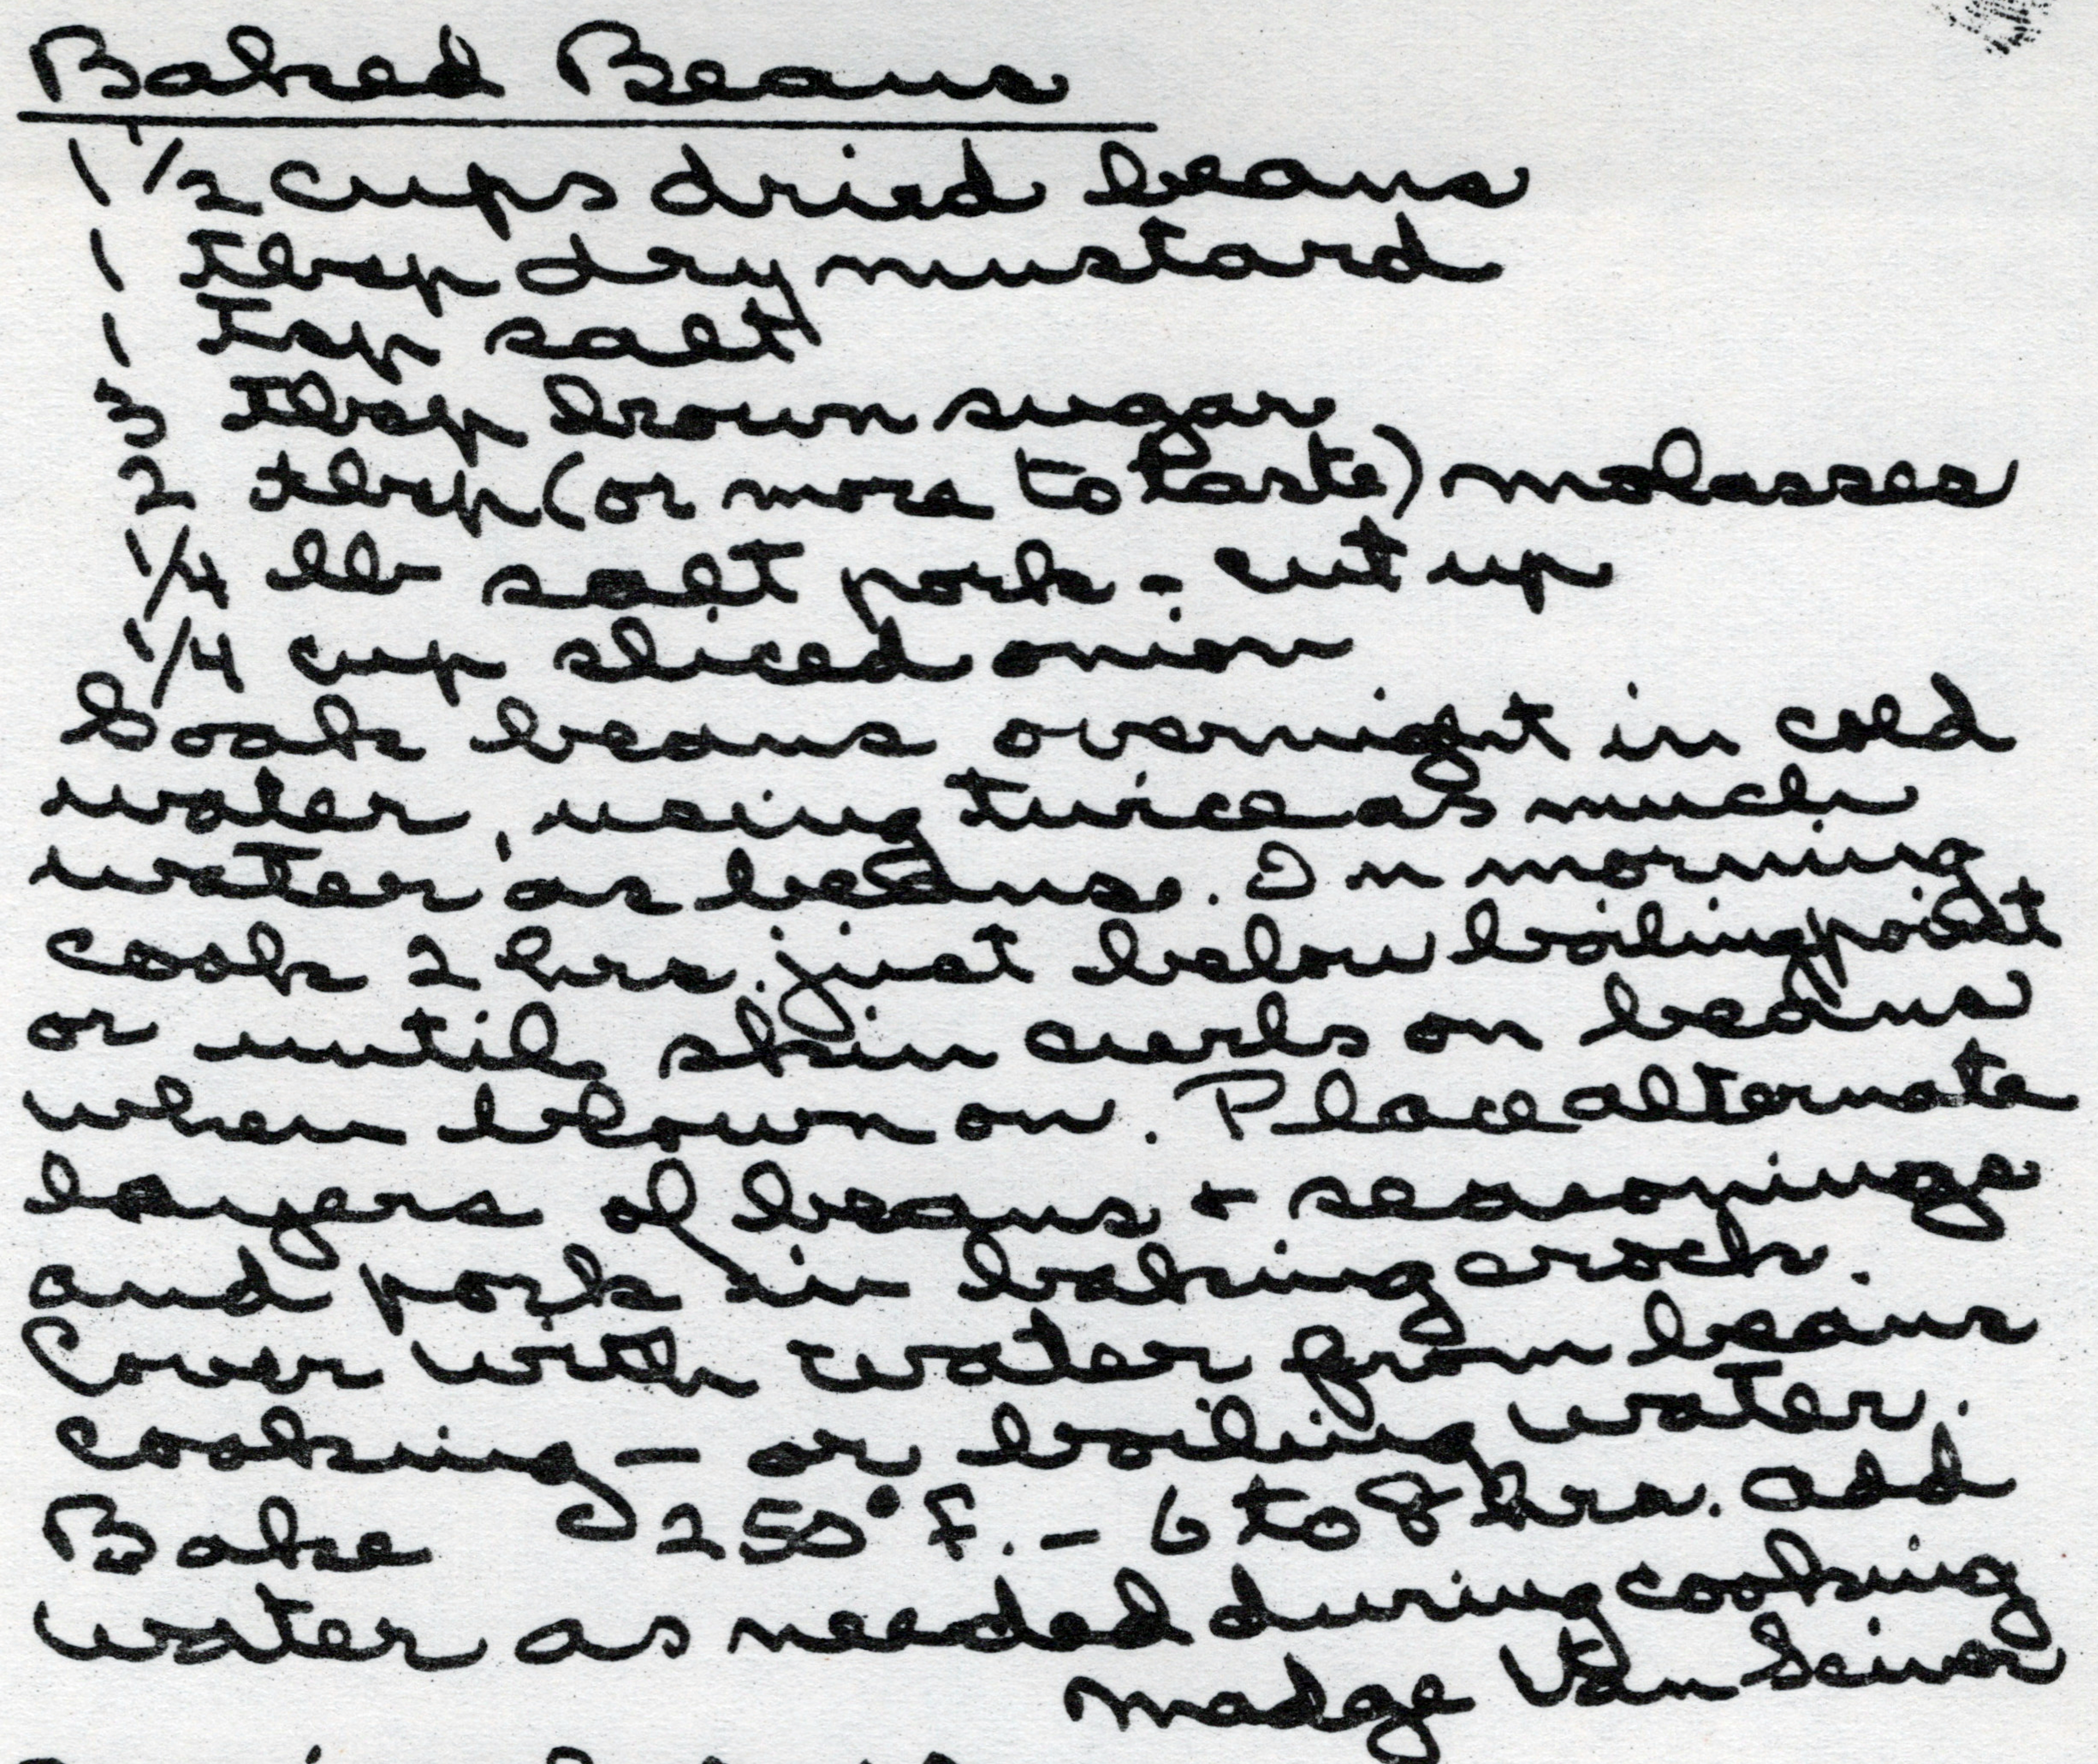 Baked Beans
1 1/2 cups dried beans
1 tbsp dry mustard
1 tsp salt
3 tbsp brown sugar
2 tbsp (or more to taste) molasses
1/4 lb salt pork - cut up
1/4 cup sliced onion
Soak beans overnight in cold
water, using twice as much
water as beans. In morning
cook 2 hrs. just below boiling point
or until skin curls on beans
when blown on. Place alternate
layers of beans + seasonings
and pork in baking crock.
Cover with water from beans
cooking - or boiling water.
Bake 250° F. - 6 to 8 hrs. add
water as needed during cooking
Madge Van